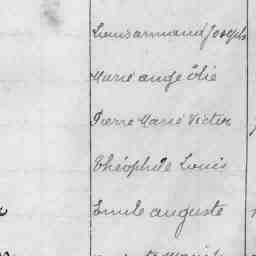 Louis armand Joseph
Marie ange Élie
Pierre Marie Victor
Théophile Louis
Emile auguste